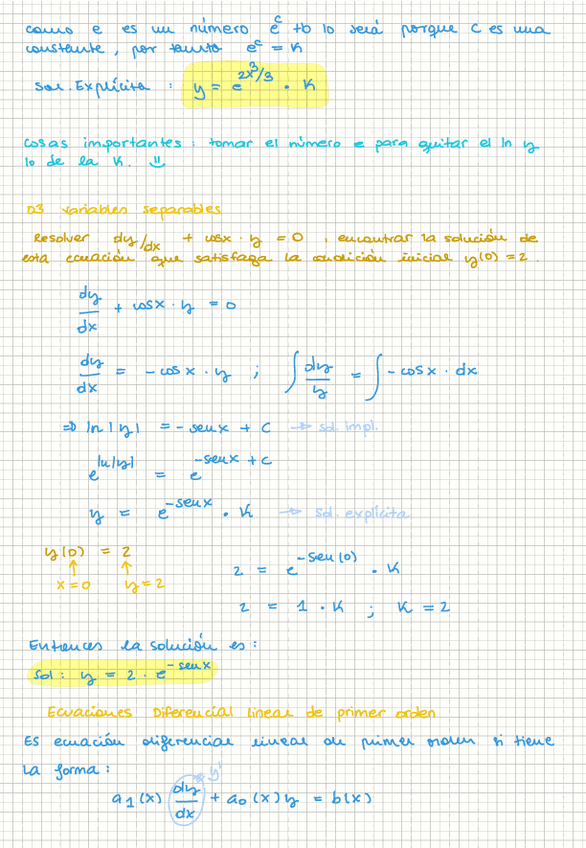 como e es un número e^c tb lo será porque c es una
constante, por tanto e^c = K
Sol. Explícita : y = e^(2x^3/3) · K
Cosas importantes: tomar el número e para quitar el ln y
lo de la K. :)
D3 variables separables
Resolver dy/dx + cosx · y = 0 , encontrar la solución de
esta ecuación que satisfaga la condición inicial y(0) = 2.
dy/dx + cosx · y = 0
dy/dx = - cosx · y ; ∫ dy/y = ∫ - cosx · dx
⇒ ln|y| = - senx + C → sol. impl.
e^(ln|y|) = e^(-senx + c)
y = e^(-senx) · K → sol. explícita
y(0) = 2
↑ ↑
x=0 y=2
2 = e^(-sen(0)) · K
2 = 1 · K ; K = 2
Entonces la solución es:
Sol: y = 2 · e^(-senx)
Ecuaciones Diferencial lineal de primer orden
Es ecuación diferencial lineal de primer orden si tiene
la forma:
→ y'
a₁(x) dy/dx + a₀(x)y = b(x)